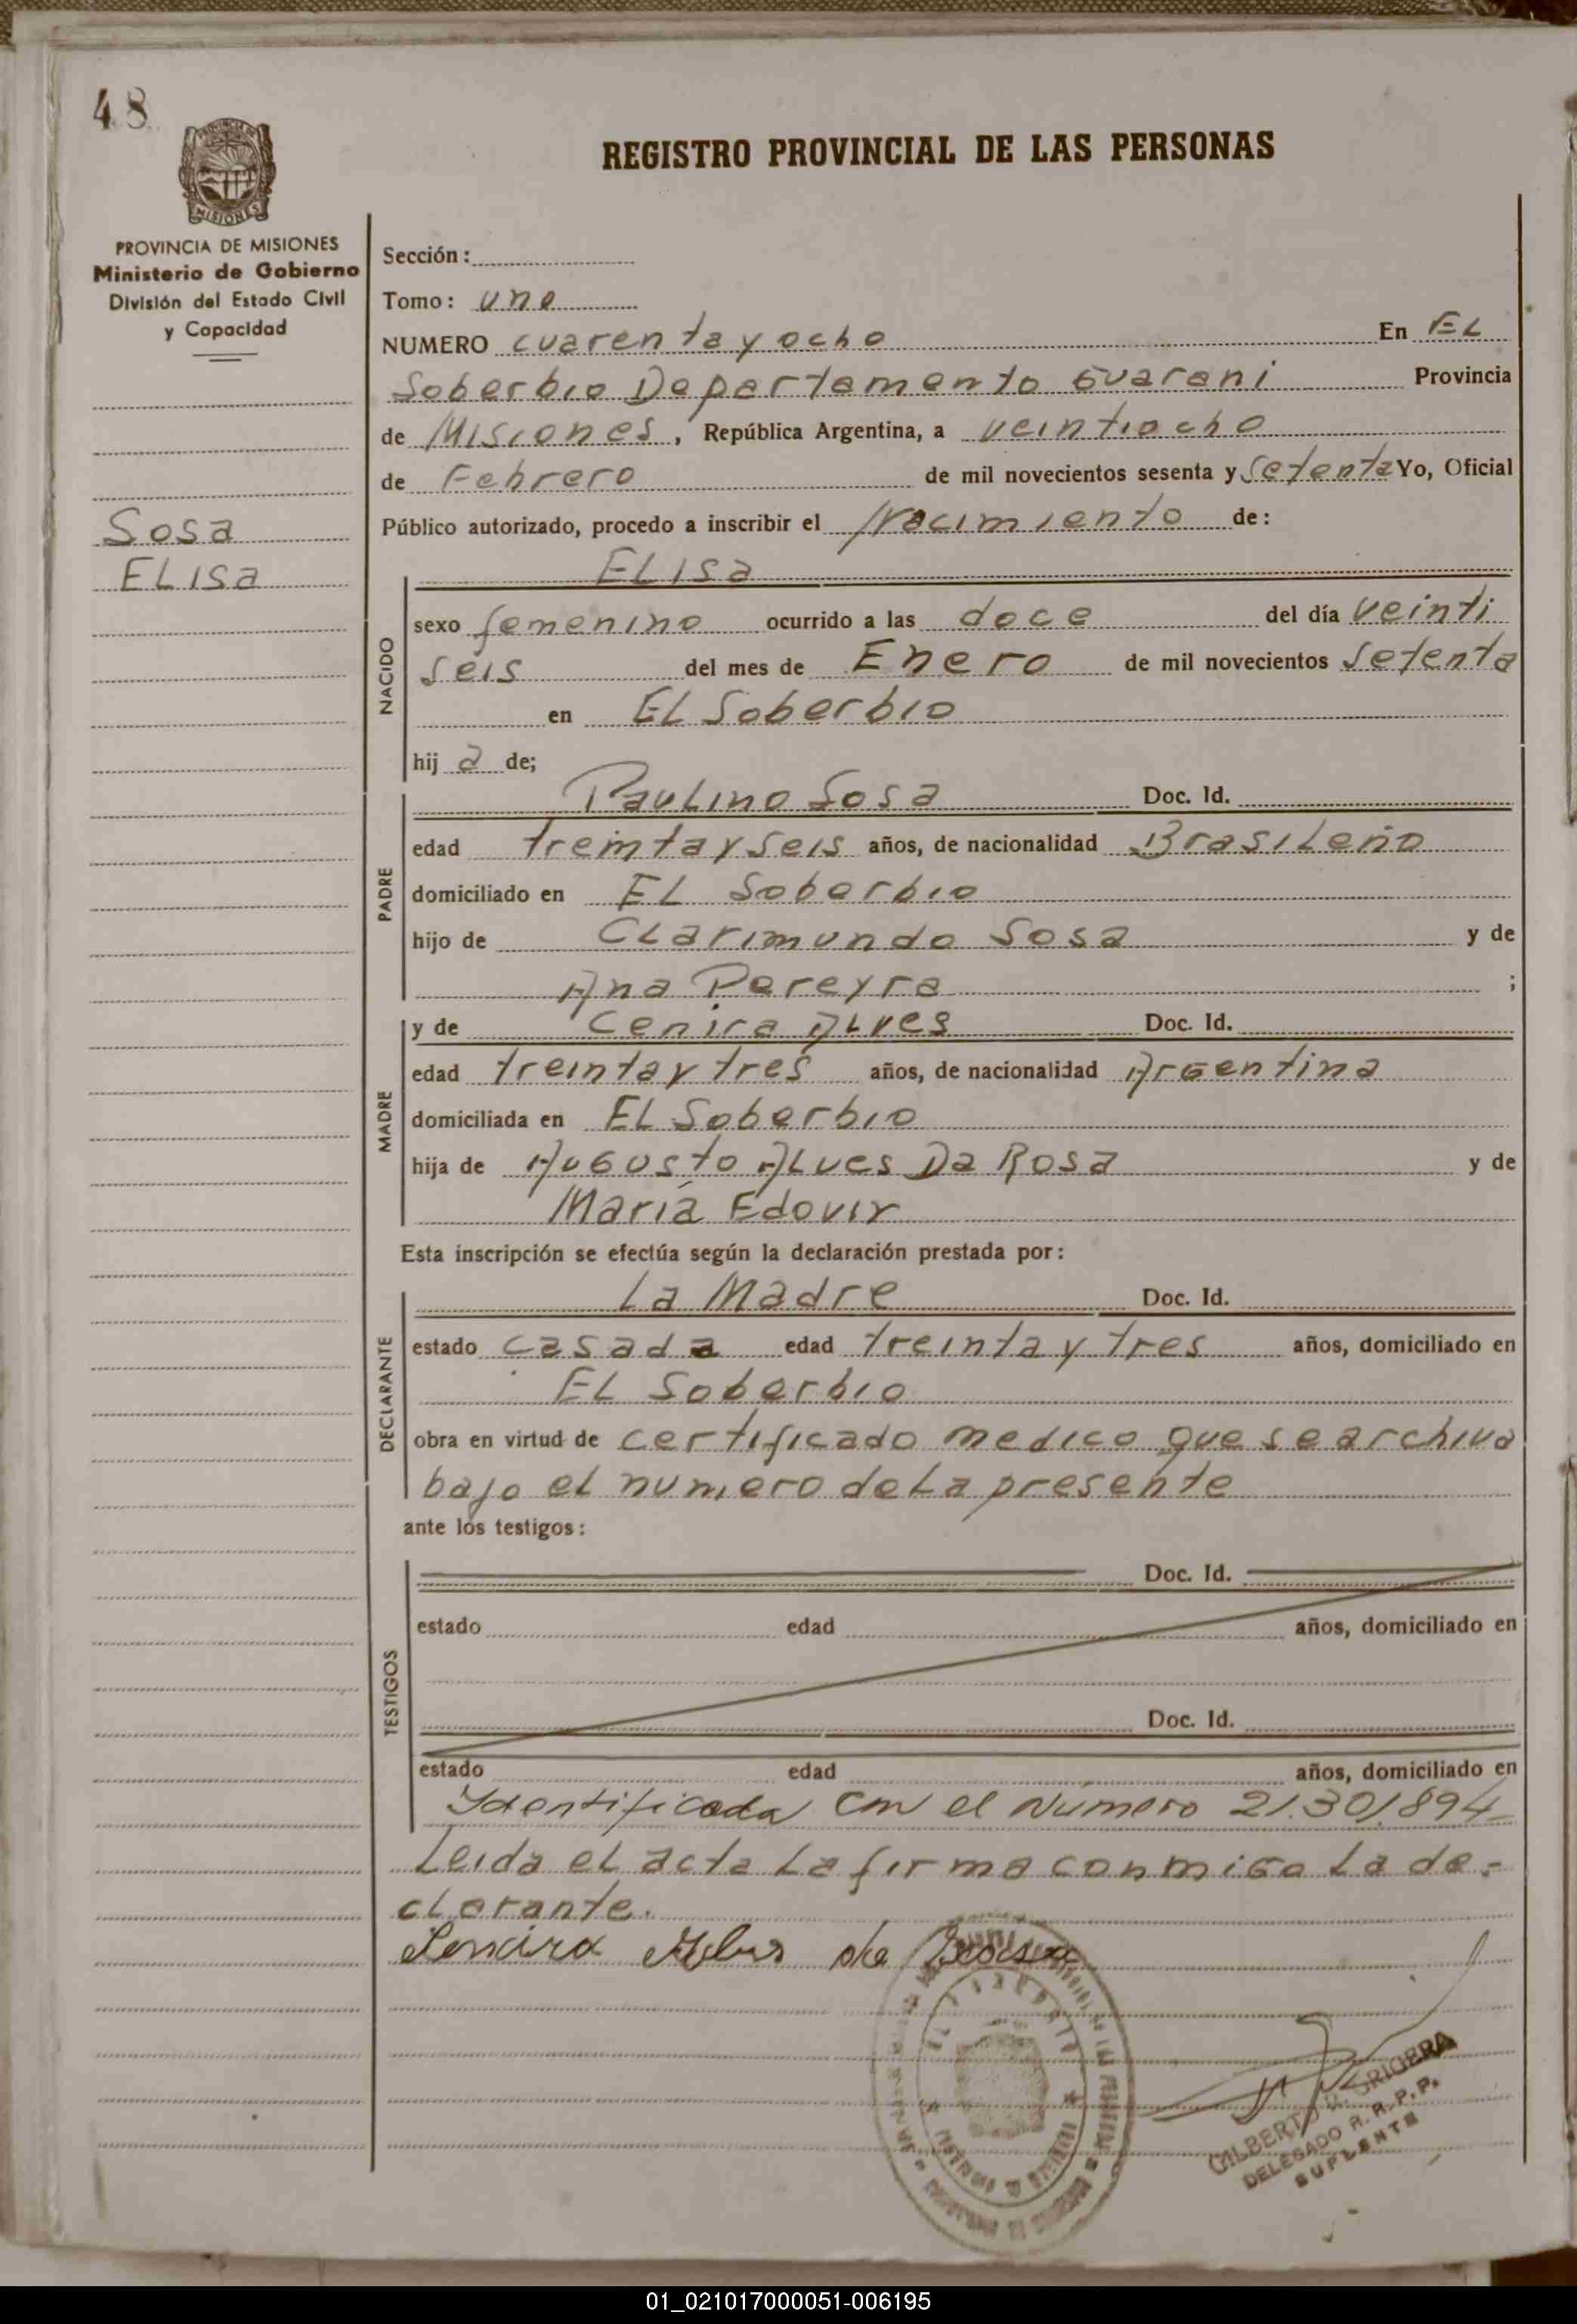 48
MISIONES
PROVINCIA DE MISIONES
Ministerio de Gobierno
División del Estado Civil
y Capacidad
Sosa
ELisa
REGISTRO PROVINCIAL DE LAS PERSONAS
Sección:
Tomo: uno
NUMERO cuarenta y ocho En EL
Soberbio Departamento Guarani Provincia
de Misiones, República Argentina, a veintiocho
de Febrero de mil novecientos sesenta y Setenta Yo, Oficial
Público autorizado, procedo a inscribir el Nacimiento de:
NACIDO
ELisa
sexo femenino ocurrido a las doce del día veinti
seis del mes de Enero de mil novecientos setenta
en EL Soberbio
hija de;
PADRE
PauLino Sosa Doc. Id.
edad treinta y seis años, de nacionalidad BrasiLeño
domiciliado en EL Soberbio
hijo de CLarimundo Sosa y de
Ana Pereyra ;
MADRE
y de Cenira ALves Doc. Id.
edad treinta y tres años, de nacionalidad Argentina
domiciliada en EL Soberbio
hija de Augusto ALves Da Rosa y de
María Edovir
Esta inscripción se efectúa según la declaración prestada por:
DECLARANTE
La Madre Doc. Id.
estado casada edad treinta y tres años, domiciliado en
EL Soberbio
obra en virtud de certificado medico que se archiva
bajo el numero de La presente
ante los testigos:
TESTIGOS
Doc. Id.
estado edad años, domiciliado en
Doc. Id.
estado edad años, domiciliado en
Identificada con el Número 21.301.894
Leida el acta La firma conmigo La de-
cLarante.
de
GILBERTO GRIGERA
DELEGADO R. P. P.
SUPLENTE
01_021017000051-006195